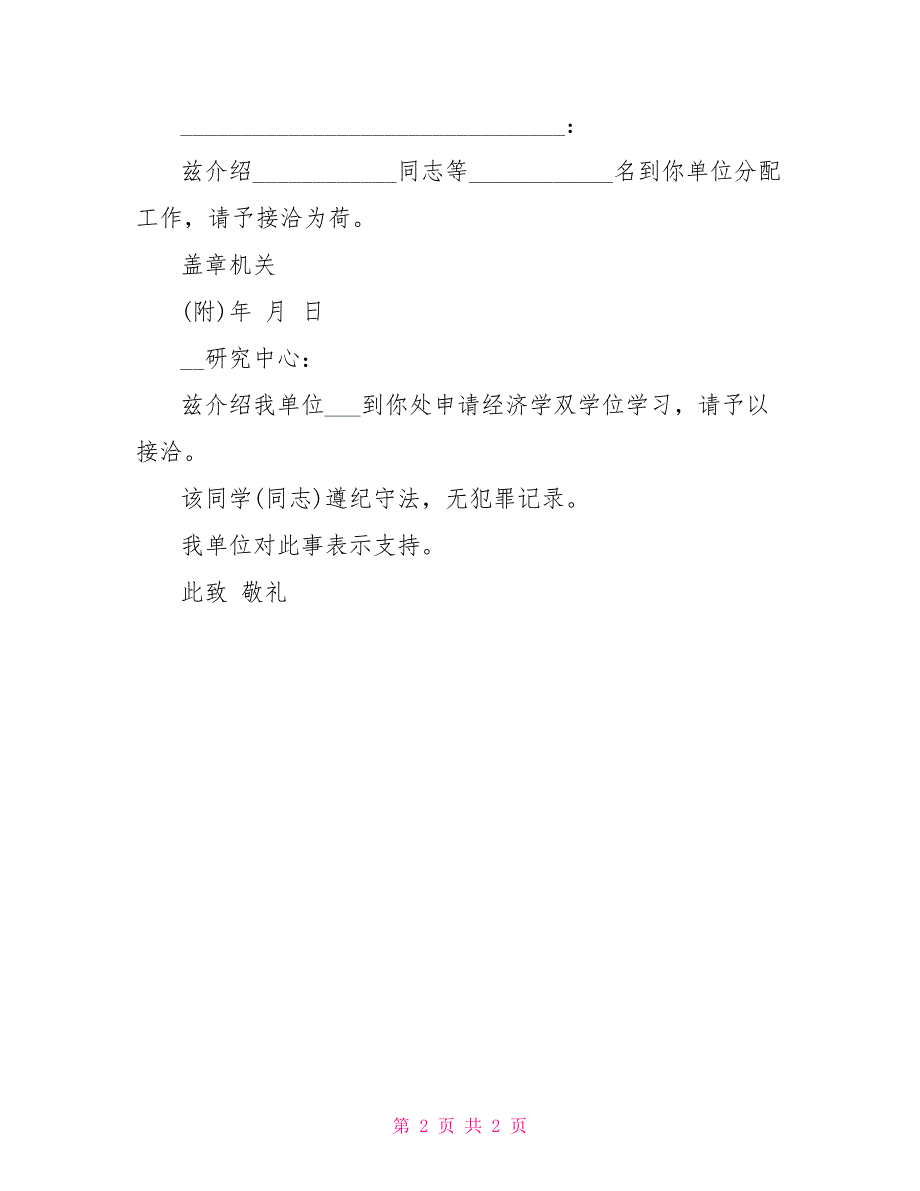 ________________________________：
兹介绍____________同志等____________名到你单位分配
工作，请予接洽为荷。
盖章机关
(附)年 月 日
__研究中心：
兹介绍我单位___到你处申请经济学双学位学习，请予以
接洽。
该同学(同志)遵纪守法，无犯罪记录。
我单位对此事表示支持。
此致 敬礼
第 2 页 共 2 页